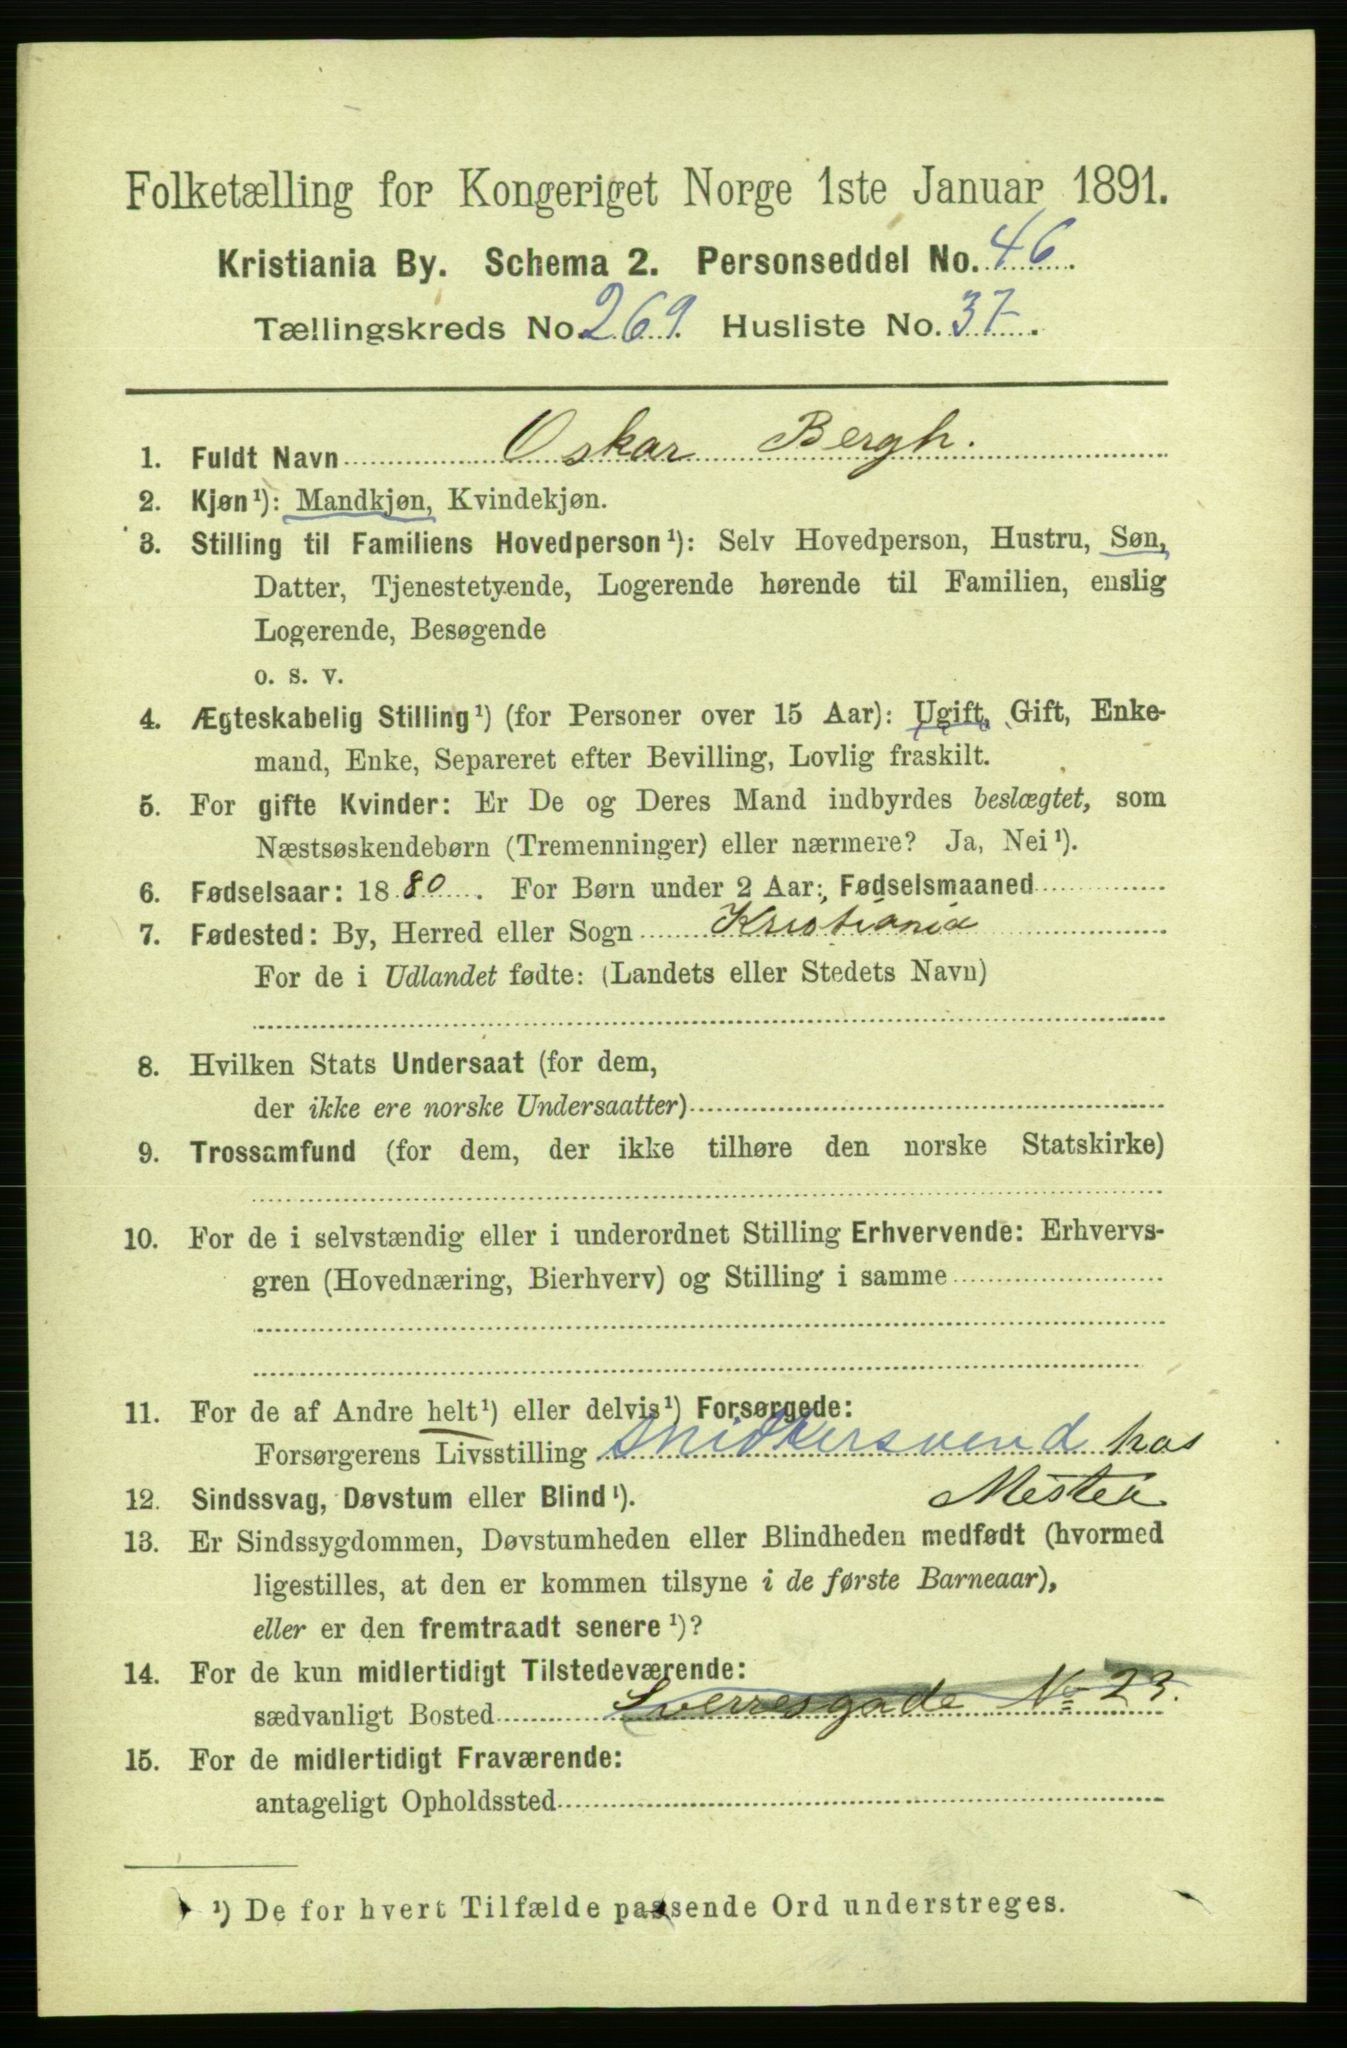 Folketælling for Kongeriget Norge 1ste Januar 1891.
Kristiania By. Schema 2. Personseddel No. 46.
Tællingskreds No. 269. Husliste No. 37.
1. Fuldt Navn Oskar Bergh.
2. Kjøn¹): Mandkjøn, Kvindekjøn.
3. Stilling til Familiens Hovedperson¹): Selv Hovedperson, Hustru, Søn,
Datter, Tjenestetyende, Logerende hørende til Familien, enslig
Logerende, Besøgende
o. s. v.
4. Ægteskabelig Stilling¹) (for Personer over 15 Aar): Ugift, Gift, Enke-
mand, Enke, Separeret efter Bevilling, Lovlig fraskilt.
5. For gifte Kvinder: Er De og Deres Mand indbyrdes beslægtet, som
Næstsøskendebørn (Tremenninger) eller nærmere? Ja, Nei¹).
6. Fødselsaar: 1880. For Børn under 2 Aar: Fødselsmaaned
7. Fødested: By, Herred eller Sogn Kristiania
For de i Udlandet fødte: (Landets eller Stedets Navn)
8. Hvilken Stats Undersaat (for dem,
der ikke ere norske Undersaatter)
9. Trossamfund (for dem, der ikke tilhøre den norske Statskirke)
10. For de i selvstændig eller i underordnet Stilling Erhvervende: Erhvervs-
gren (Hovednæring, Bierhverv) og Stilling i samme
11. For de af Andre helt¹) eller delvis¹) Forsørgede:
Forsørgerens Livsstilling Snidkersvend hos
12. Sindssvag, Døvstum eller Blind¹). Mester
13. Er Sindssygdommen, Døvstumheden eller Blindheden medfødt (hvormed
ligestilles, at den er kommen tilsyne i de første Barneaar),
eller er den fremtraadt senere¹)?
14. For de kun midlertidigt Tilstedeværende:
sædvanligt Bosted Sverresgade No 23.
15. For de midlertidigt Fraværende:
antageligt Opholdssted
¹) De for hvert Tilfælde passende Ord understreges.